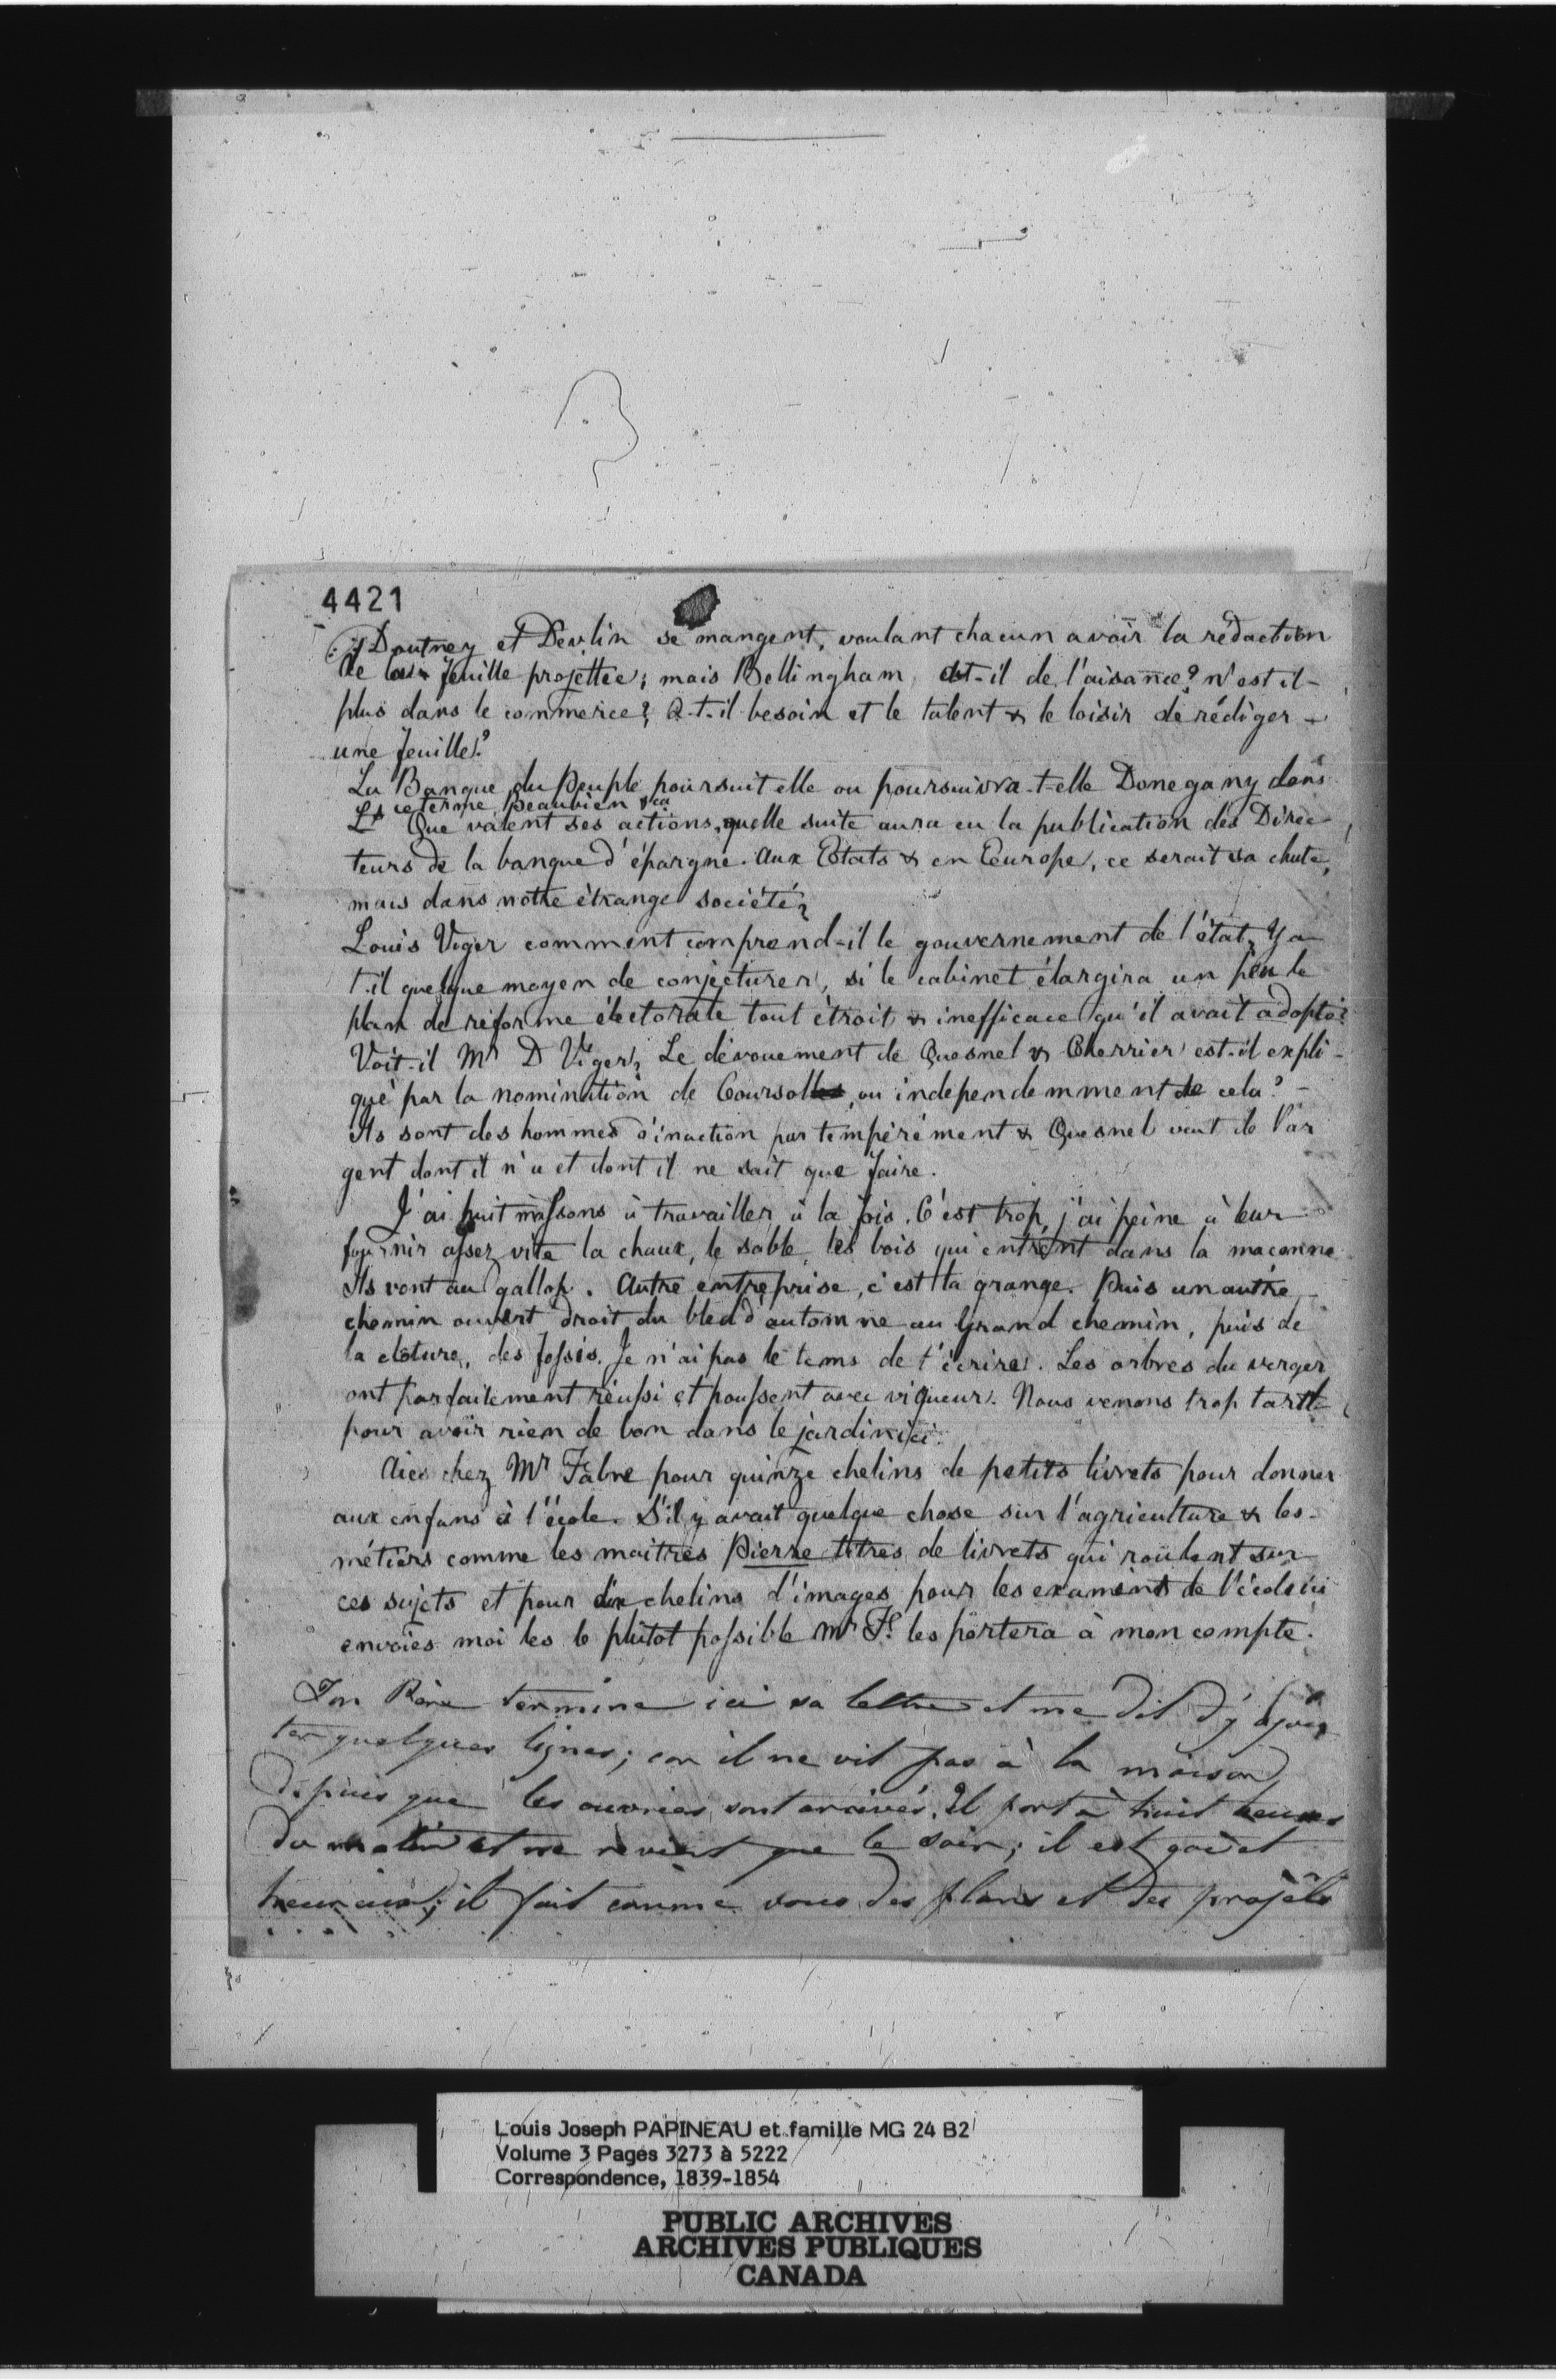 4421
Doutney et Devlin se mangent, voulant chacun avoir la rédaction
de leur feuille projettée; mais Bellingham, at-il de l'aisance? n'est il
plus dans le commerce? A-t-il besoin et le talent & le loisir de rédiger
une feuille?
La Banque du Peuple poursuit elle ou poursuivra-t-elle Donegany dans
ce terme Beaubien &ca
Que valent ses actions, quelle suite aura eu la publication des Direc
teurs de la banque d'épargne. Aux Etats & en Europe, ce serait sa chute,
mais dans notre étrange société?
Louis Viger comment comprend-il le gouvernement de l'état, Y a
t-il quelque moyen de conjecturer, si le cabinet élargira un peu le
plan de réforme électorale tout étroit & inefficace qu'il avait adopté?
Voit-il Mr D Viger? Le dévouement de Quesnel & Cherrier est-il expli-
qué par la nomination de Coursol, ou independemment de cela?
Ils sont des hommes d'inaction par tempérément & Quesnel veut de l'ar
gent dont il n'a et dont il ne sait que faire.
J'ai huit massons à travailler à la fois. C'est trop, j'ai peine à leur
fournir assez vite la chaux, le sable, les bois qui entrent dans la maconne
Ils vont au gallop. Autre entreprise, c'est la grange. Puis un autre
chemin ouvert droit du bled d'automne au Grand chemin, puis de
la cloture, des fossés. Je n'ai pas le tems de t'écrire. Les arbres du verger
ont parfaitement réussi et poussent avec vigueur. Nous venons trop tard
pour avoir rien de bon dans le jardin ici.
Aies chez Mr Fabre pour quinze chelins de petits livrets pour donner
aux enfans à l'école. S'il y avait quelque chose sur l'agriculture & les
métiers comme les maitres Pierre titres de livrets qui roulent sur
ces sujets et pour dix chelins d'images pour les examens de l'école ici
envoies moi les le plutot possible Mr F. les portera à mon compte.
Ton Père termine ici sa lettre et me dit d'y ajou
ter quelques lignes; car il ne vit pas à la maison
depuis que les ouvriers sont arrivés. Il part à huit heures
du matin et ne revient que le soir; il est gai et
heureux; il fait comme vous des plans et des projêts
Louis Joseph PAPINEAU et famille MG 24 B2
Volume 3 Pages 3273 à 5222
Correspondence, 1839-1854
PUBLIC ARCHIVES
ARCHIVES PUBLIQUES
CANADA